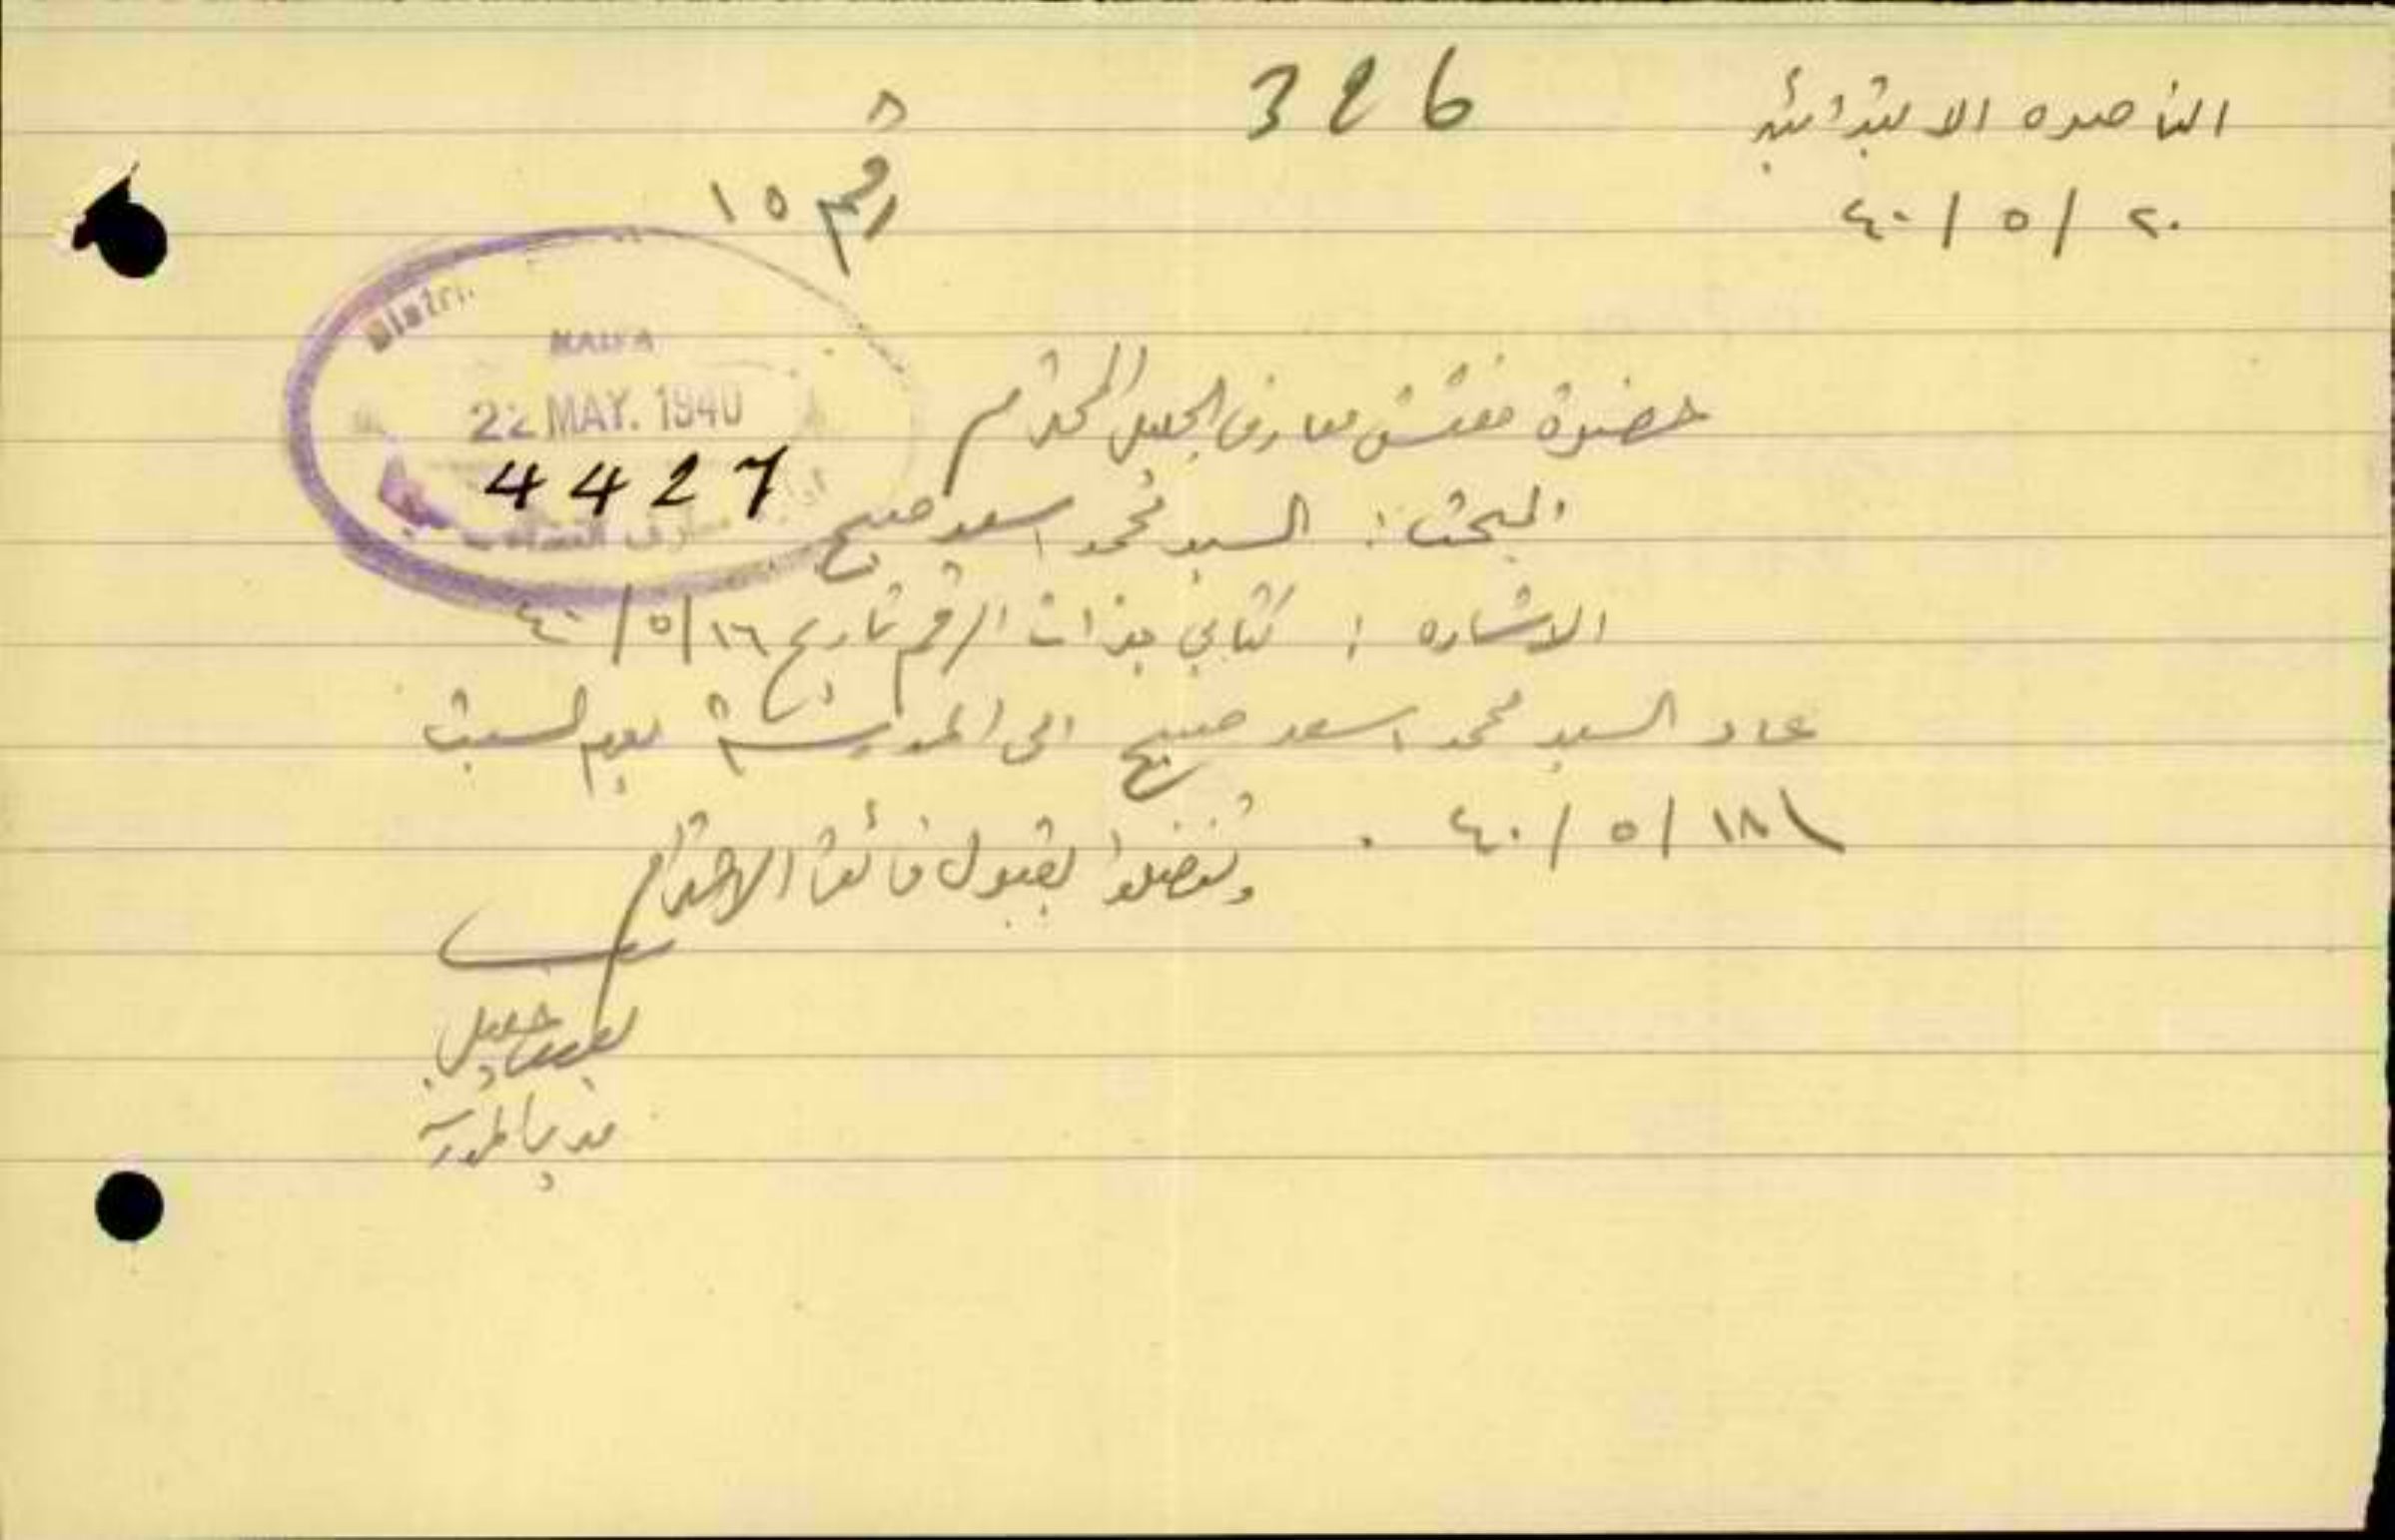 326
الناصره الابتدائية
٢٠/٥/٤٠
رقم ١٥
HAIFA
22 MAY. 1940
4427
حضرة مفتش معارف الجليل المحترم
المبحث : السيد محمد اسعد صبيح
الاشاره : كتابي بذات الرقم تاريخ ١٦/٥/٤٠
عاد السيد محمد اسعد صبيح الى المدرسة يوم السبت
١٨/٥/٤٠ .
وتفضلوا بقبول فائق الاحترام
مدير المدرسة